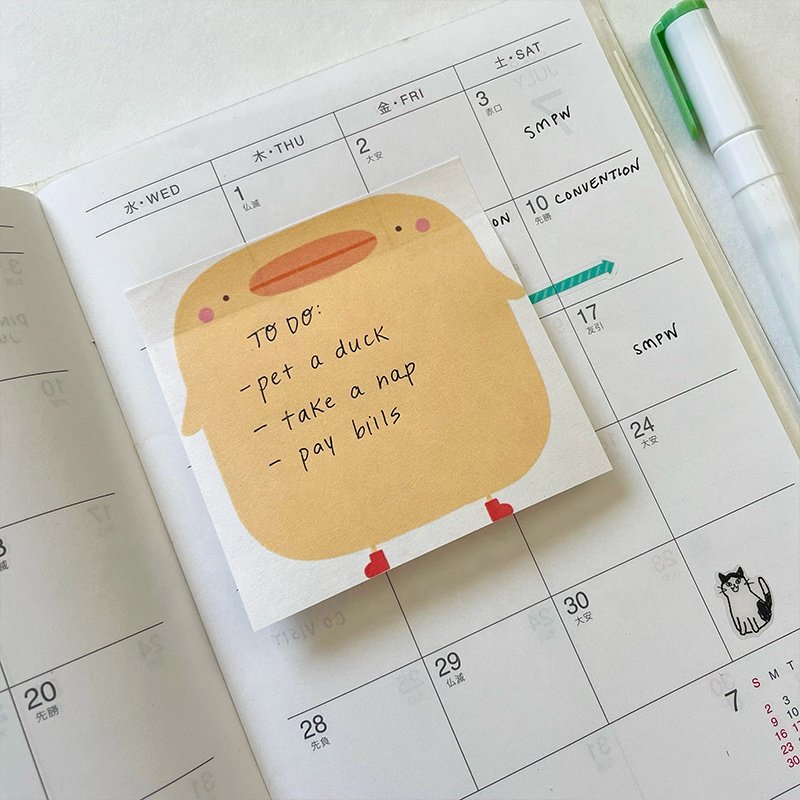 水・WED
木・THU
金・FRI
土・SAT
1
仏滅
2
大安
3
赤口
SMPW
10
先勝
CONVENTION
17
友引
SMPW
24
大安
TO DO:
- pet a duck
- take a nap
- pay bills
20
先勝
28
先負
29
仏滅
30
大安
7
S M T
2 3
9 10
16 17
23
30